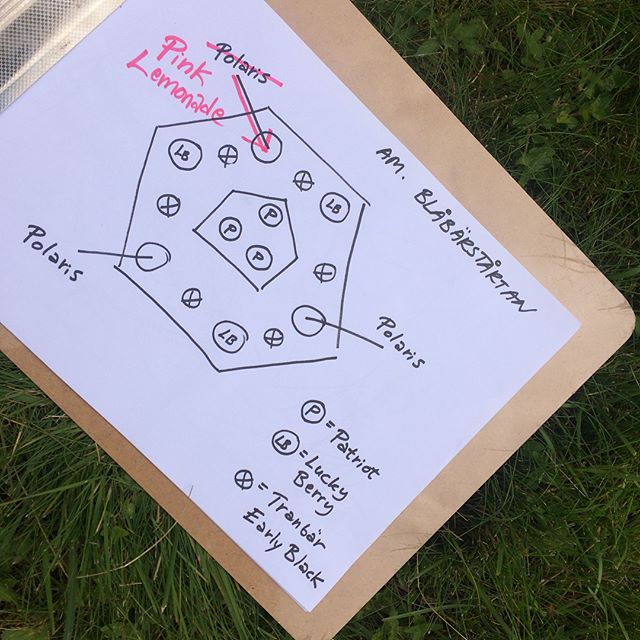 AM. BLÅBÄRSTÅRTAN
Polaris
Pink
Lemonade
LB
LB
P
P
P
Polaris
LB
Polaris
P = Patriot
LB = Lucky
Berry
⊗ = Tranbär
Early Black